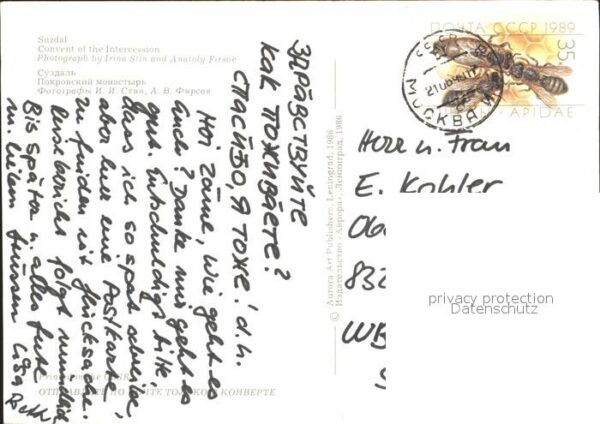 Suzdal
Convent of the Intercession
Photograph by Irina Stin and Anatoly Firsov
Суздаль
Покровский монастырь
Фотографы И. И. Стин, А. В. Фирсов
ЗДРАВСТВУЙТЕ
КАК ПОЖИВАЕТЕ?
СПАСИБО, Я ТОЖЕ! d.h.
Hoi zäme, wie geht es
euch? Danke mir geht es
gut. Entschuldigt bitte,
dass ich so spät schreibe,
aber hier eine Postkarte
zu finden ist Glücksache.
Reisebericht folgt mündlich
Bis später u. alles Gute
m. lieben Grüssen Lisa
© Aurora Art Publishers, Leningrad, 1986
Издательство «Аврора», Ленинград, 1986
ОТПРАВЛЯТЬ ПО ПОЧТЕ ТОЛЬКО В КОНВЕРТЕ
ПОЧТА СССР 1989
35
APIDAE
СССР
МОСКВА
Herr u. Frau
E. Kohler
832
privacy protection
Datenschutz